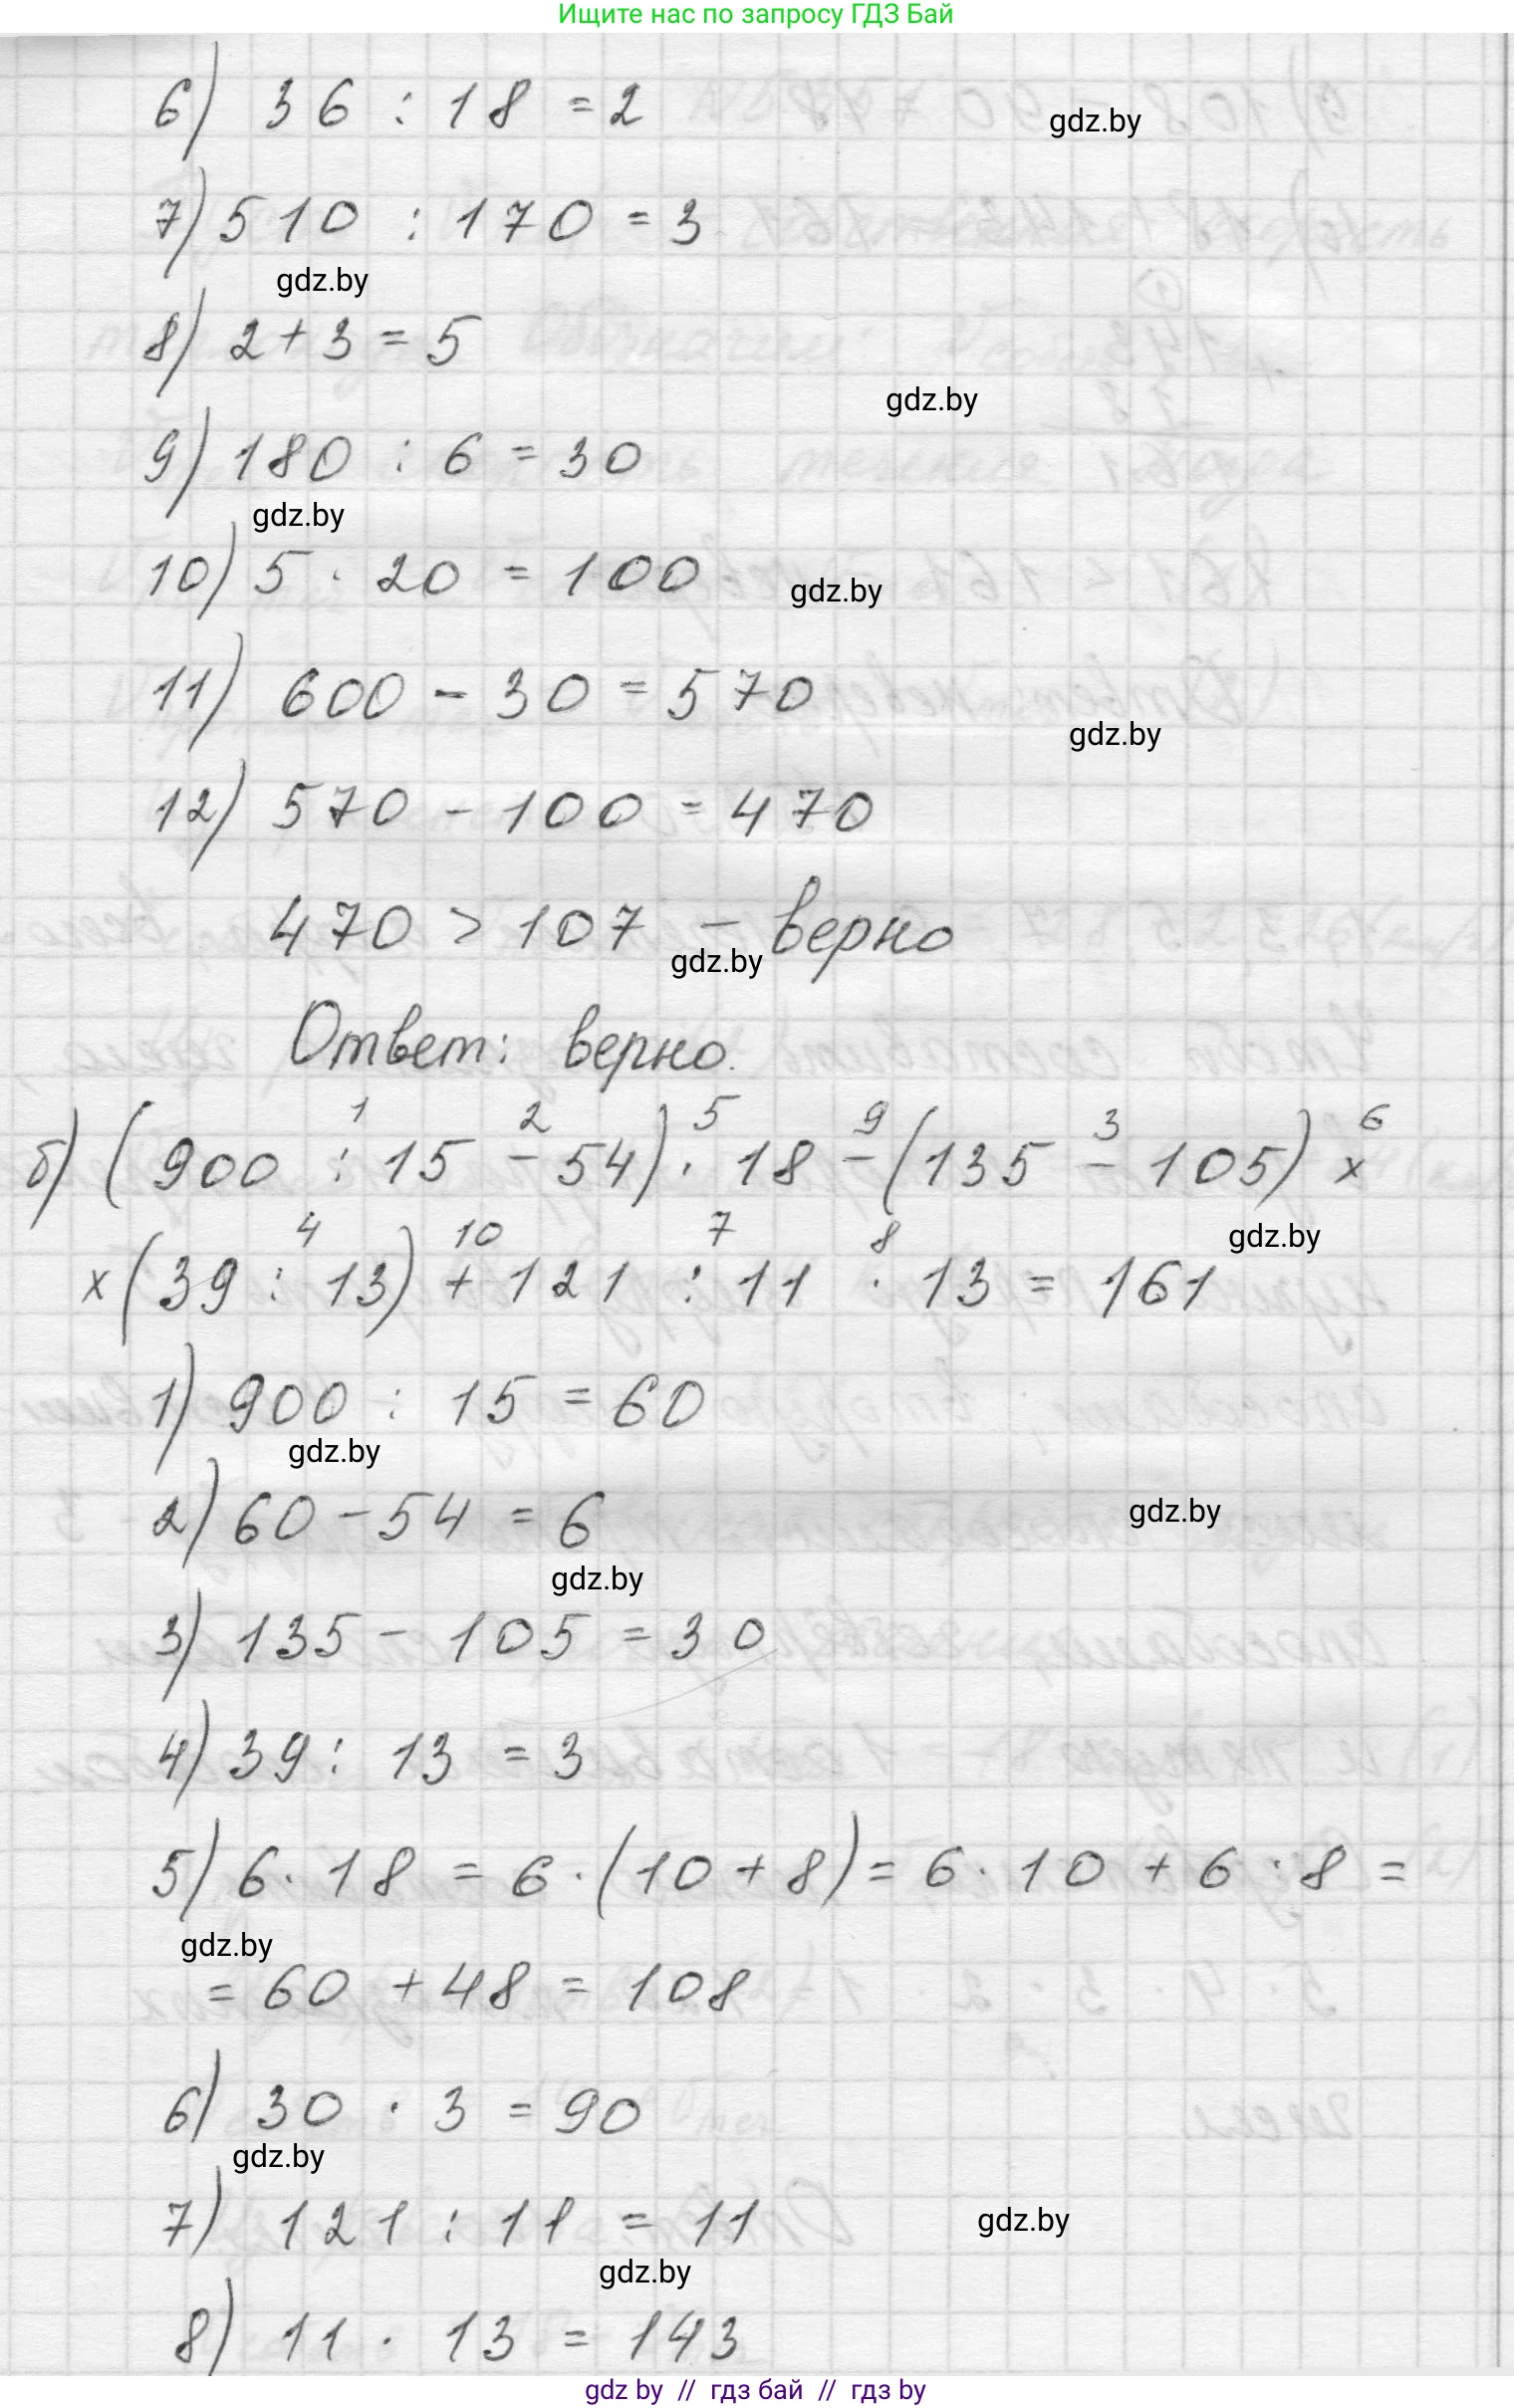 Ищите нас по запросу ГДЗ Бай
6) 36 : 18 = 2
gdz.by
7) 510 : 170 = 3
gdz.by
8) 2 + 3 = 5
gdz.by
9) 180 : 6 = 30
gdz.by
10) 5 · 20 = 100
gdz.by
11) 600 - 30 = 570
gdz.by
12) 570 - 100 = 470
470 > 107 - верно
gdz.by
Ответ: верно.
1 2 5 9 3 6
б) (900 : 15 - 54) · 18 - (135 - 105) ×
4 10 7 8
gdz.by
× (39 : 13) + 121 : 11 · 13 = 161
1) 900 : 15 = 60
gdz.by
2) 60 - 54 = 6
gdz.by
gdz.by
3) 135 - 105 = 30
4) 39 : 13 = 3
5) 6 · 18 = 6 · (10 + 8) = 6 · 10 + 6 · 8 =
gdz.by
= 60 + 48 = 108
6) 30 · 3 = 90
gdz.by
7) 121 : 11 = 11
gdz.by
gdz.by
8) 11 · 13 = 143
gdz by // гдз бай // гдз by